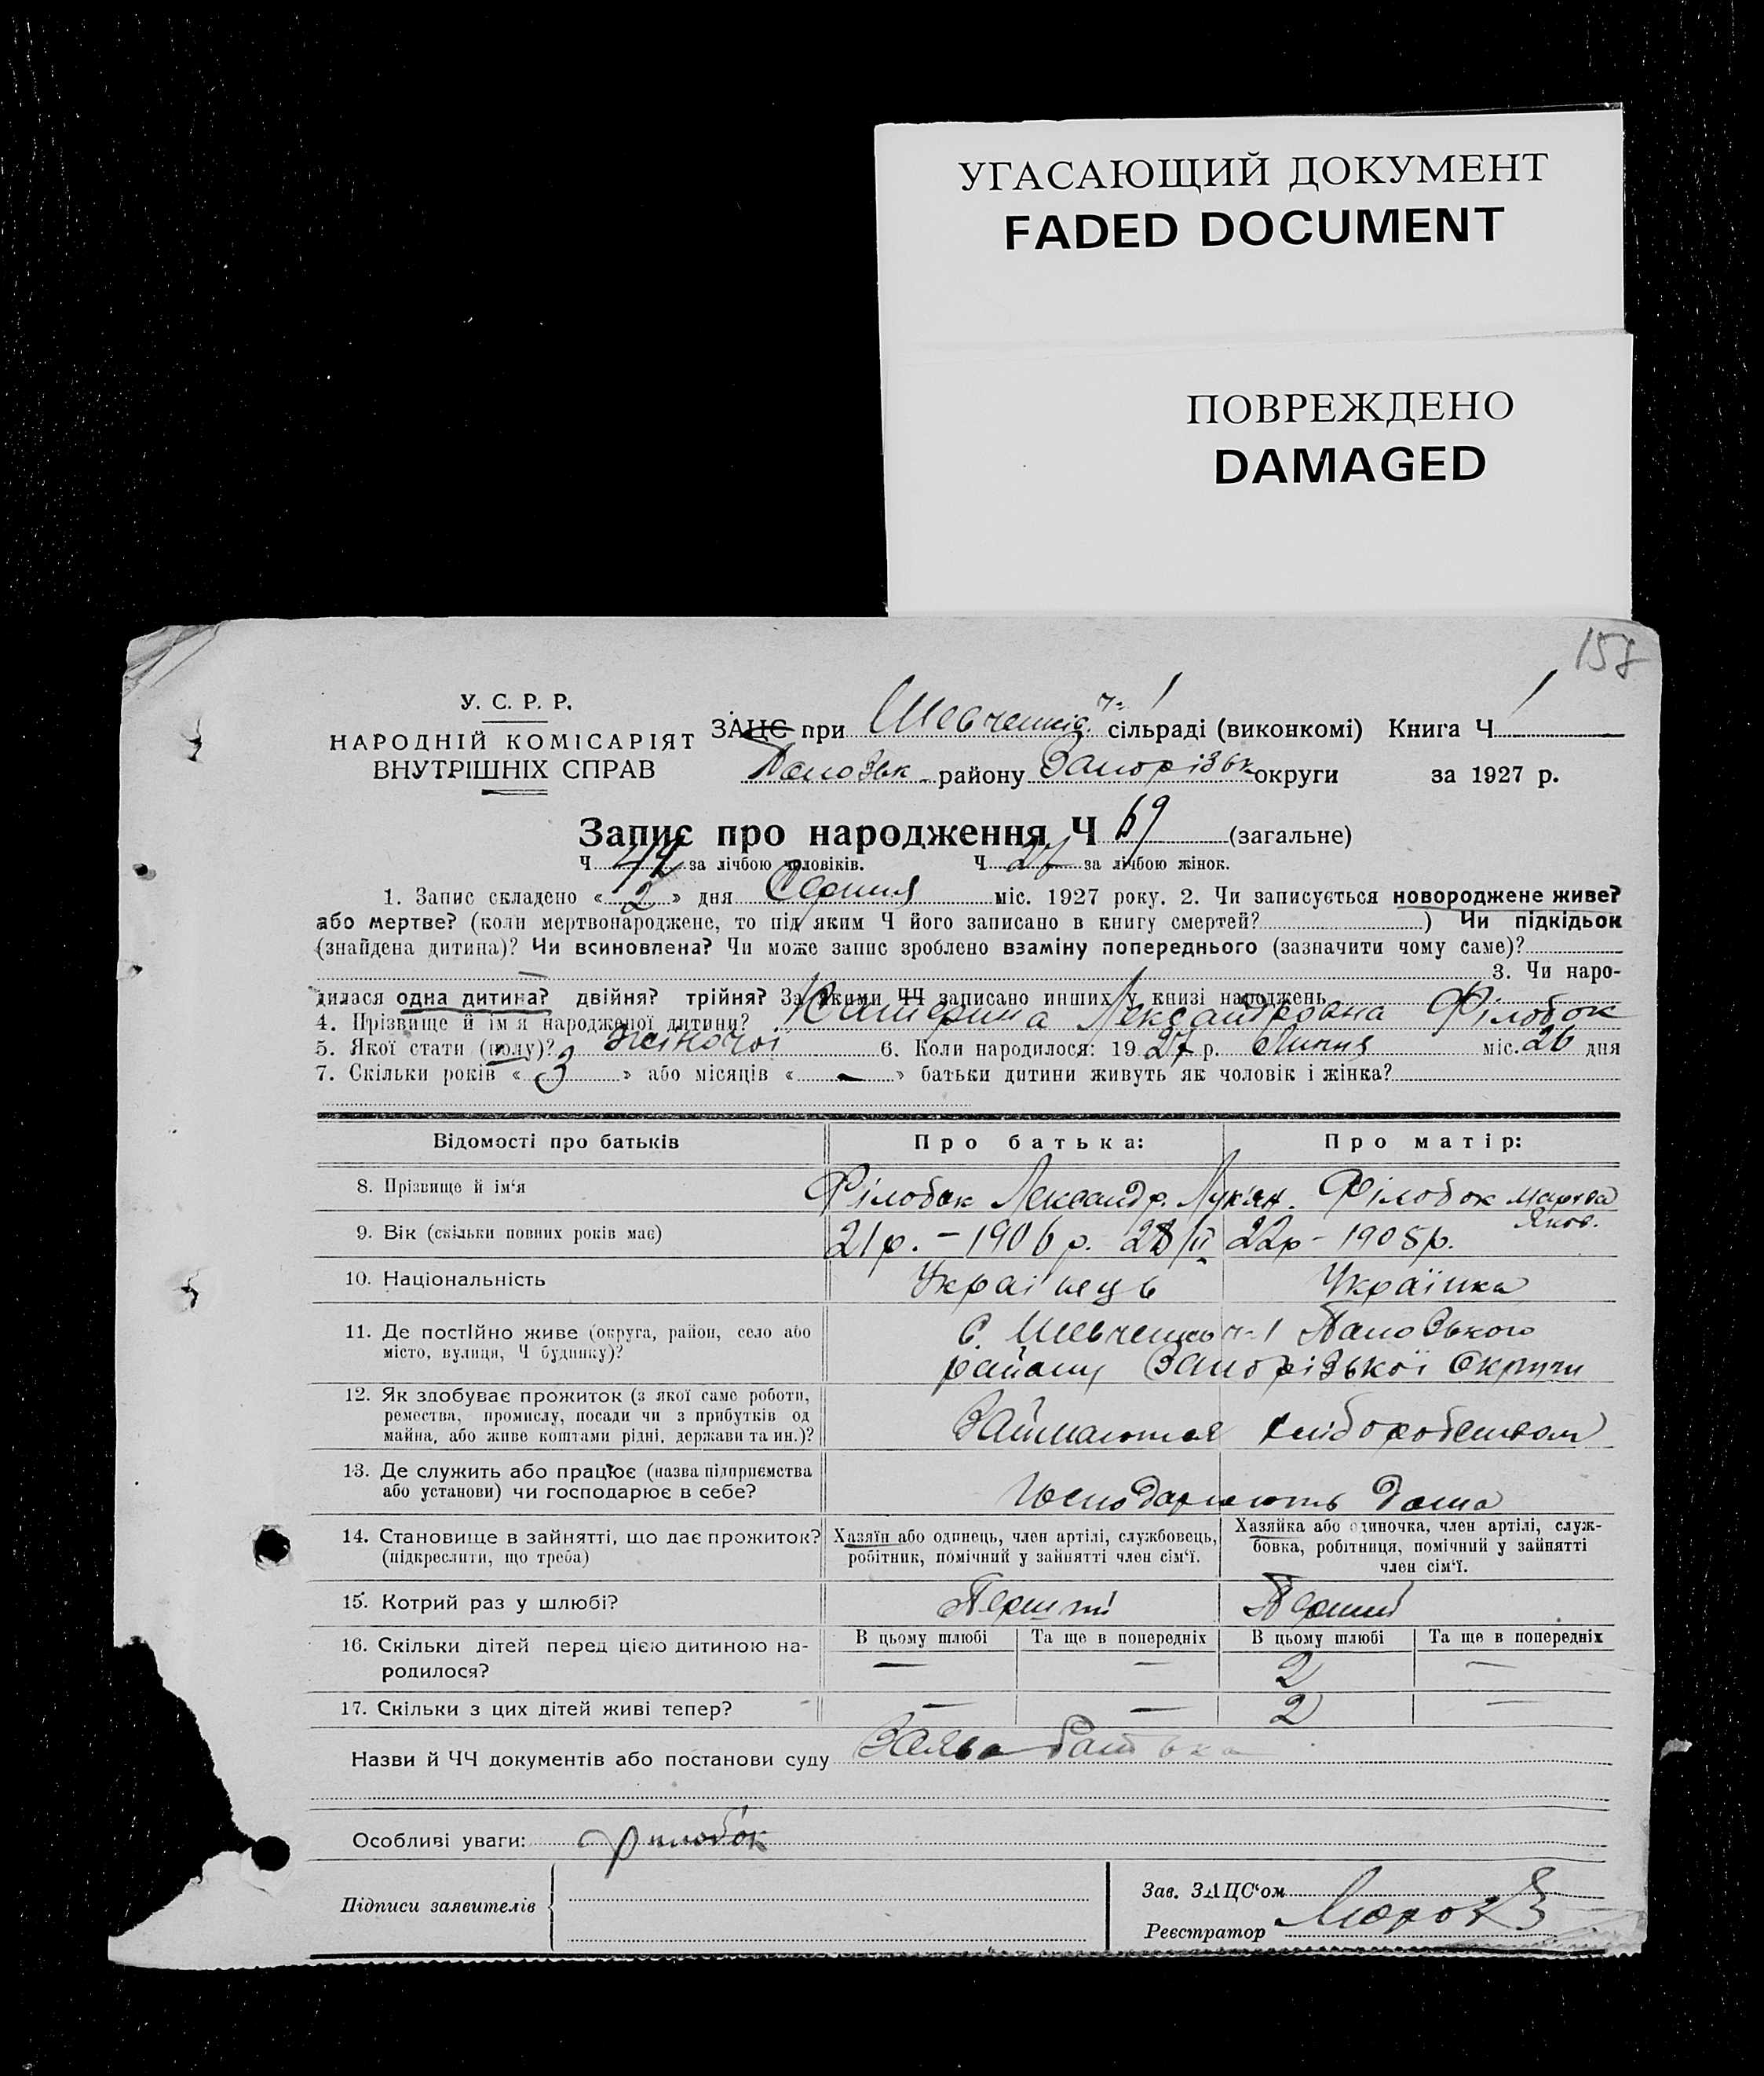 УГАСАЮЩИЙ ДОКУМЕНТ
FADED DOCUMENT
ПОВРЕЖДЕНО
DAMAGED
158
У. С. Р. Р.
НАРОДНІЙ КОМІСАРІЯТ
ВНУТРІШНІХ СПРАВ
ЗАЦС при Шевченків. ч. 1 сільраді (виконкомі) Книга Ч 1
району Запорізьк округи за 1927 р.
Запис про народження Ч 69 (загальне)
Ч 42 за лічбою чоловіків. Ч 27 за лічбою жінок.
1. Запис складено « 2 » дня Серпня міс. 1927 року. 2. Чи записується новороджене живе?
або мертве? (коли мертвонароджене, то під яким Ч його записано в книгу смертей? ) Чи підкідьок
(знайдена дитина)? Чи всиновлена? Чи може запис зроблено взаміну попереднього (зазначити чому саме)?
3. Чи наро-
дилася одна дитина? двійня? трійня? За якими ЧЧ записано инших у книзі народжень
4. Прізвище й ім'я народженої дитини? Катерина Лександровна Філобок
5. Якої стати (полу)? жіночої 6. Коли народилося: 1927 р. Липня міс. 26 дня
7. Скільки років « 3 » або місяців « — » батьки дитини живуть як чоловік і жінка?
Відомості про батьків Про батька: Про матір:
8. Прізвище й ім‘я Філобок Лександр. Лук'ян. Філобок Марфа Яков.
9. Вік (скільки повних років має) 21 р. – 1906 р. 28/II 22 р – 1905 р.
10. Національність Украінець Українка
11. Де постійно живе (округа, район, село або С. Шевченково ч. 1
місто, вулиця, Ч будинку)? району Запорізької Округи
12. Як здобуває прожиток (з якої саме роботи,
ремества, промислу, посади чи з прибутків од
майна, або живе коштами рідні, держави та ин.)? Займаються хліборобством
13. Де служить або працює (назва підприємства
або установи) чи господарює в себе? Господарюють дома
14. Становище в зайнятті, що дає прожиток? Хазяїн або одинець, член артілі, службовець, Хазяйка або одиночка, член артілі, служ-
(підкреслити, що треба) робітник, помічний у зайнятті член сім‘ї. бовка, робітниця, помічний у зайнятті
член сім‘ї.
15. Котрий раз у шлюбі? Перший Перший
16. Скільки дітей перед цією дитиною на- В цьому шлюбі Та ще в попередніх В цьому шлюбі Та ще в попередніх
родилося? — — 2 —
17. Скільки з цих дітей живі тепер? — — 2 —
Назви й ЧЧ документів або постанови суду Заява батька
Особливі уваги: Филобок
Підписи заявителів
Зав. ЗАЦС‘ом
Реєстратор